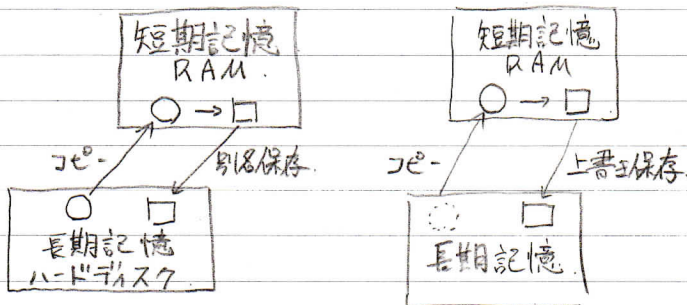 短期記憶
RAM.
コピー
別名保存.
長期記憶
ハードディスク
短期記憶
RAM
コピー
上書き保存.
長期記憶.